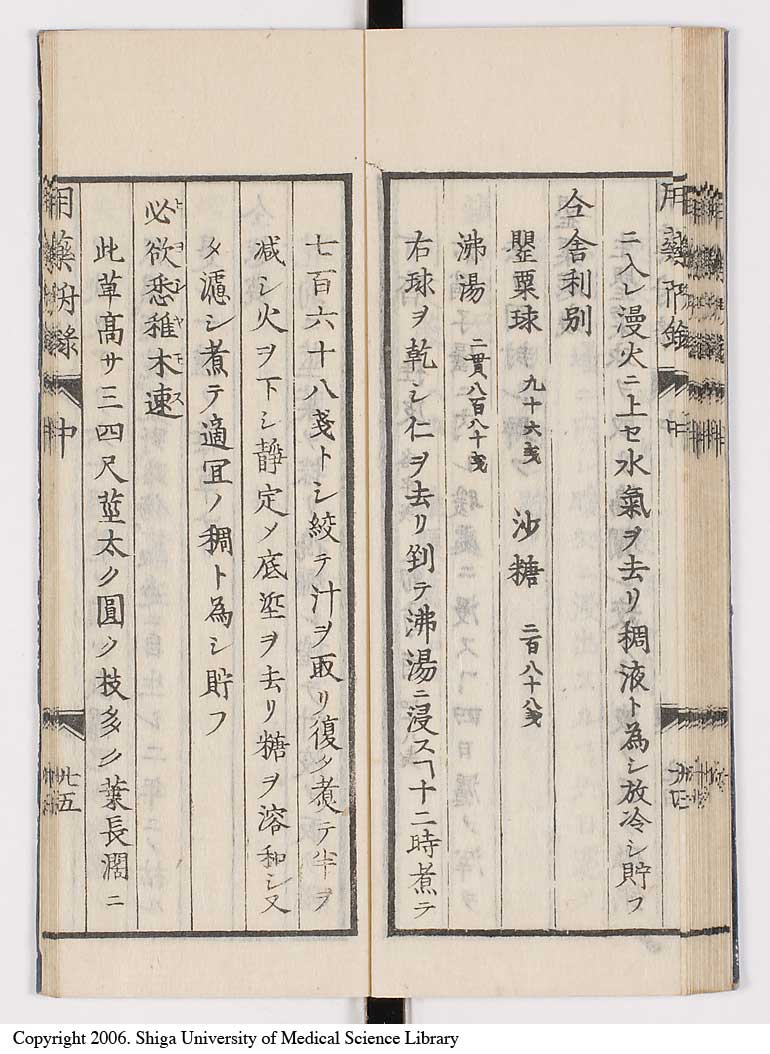 用藥附録 中
ニ入レ漫火ニ上セ水氣ヲ去リ稠液ト為シ放冷シ貯フ
仝舎利別
罌粟球 九十六戔 沙糖 二百八十八戔
沸湯 二貫八百八十戔
右球ヲ乾シ仁ヲ去リ剉テ沸湯ニ浸スヿ十二時煮テ
七百六十八戔トシ絞テ汁ヲ取リ復タ煮テ半ヲ
减シ火ヲ下シ静定メ底埊ヲ去リ糖ヲ溶和シ又
タ濾シ煮テ適冝ノ稠ト為シ貯フ
必欲悉稚木速 トヨシヤモス
此草髙サ三四尺莖太ク圓ク枝多ク葉長濶ニ
用藥附録 中 廿五
Copyright 2006. Shiga University of Medical Science Library